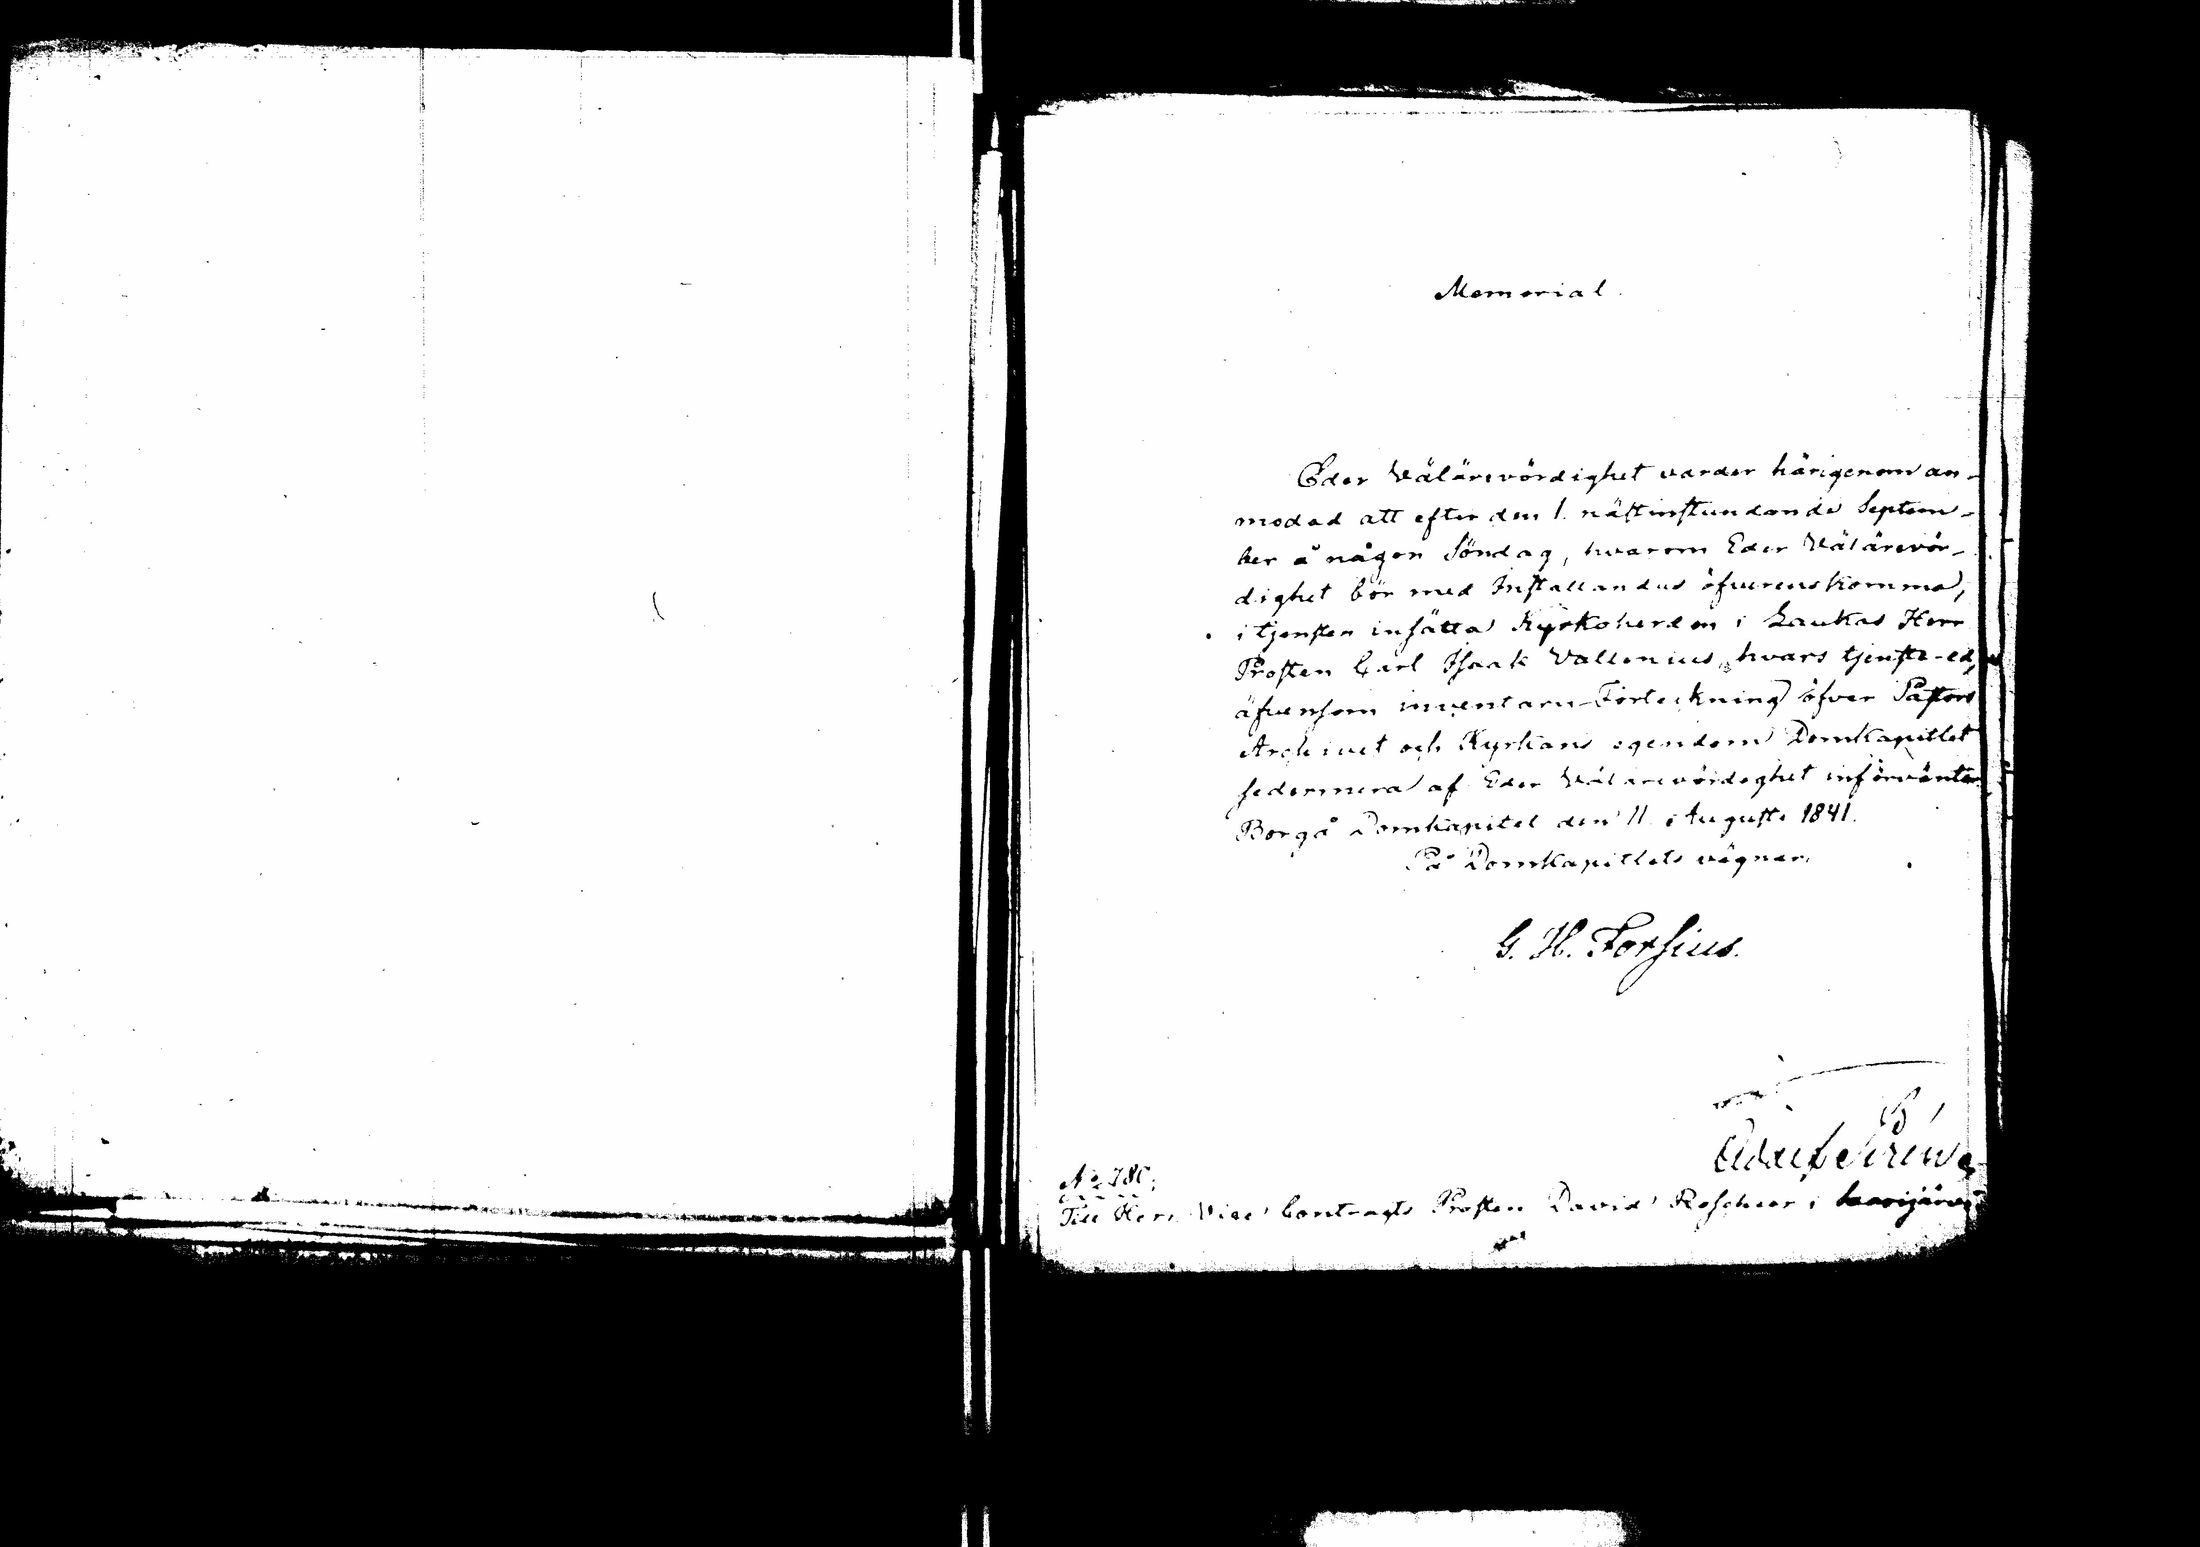 Memorial.
Eder Välärevördighet varder härigenom an-
modad att efter den 1. nästinstundande Septem-
ber å någon Söndag, hvarom Eder Välärevör-
dighet bör med Installandus öfverenskomma,
i tjensten insätta Kyrkoherden i Laukas Herr
Prosten Carl Isaak Vallenius, hvars tjenste-ed,
äfvensom inventarii-Förteckning öfver Pastors
Archivet och Kyrkans egendom Domkapitlet
sedermera af Eder Välärevördighet införväntar.
Borgå Domkapitel den 11 Augusti 1841.
På Domkapitlets vägnar.
G. H. Forsius.
No 780.
Till Herr Vice Contracts Prosten David Roschier i